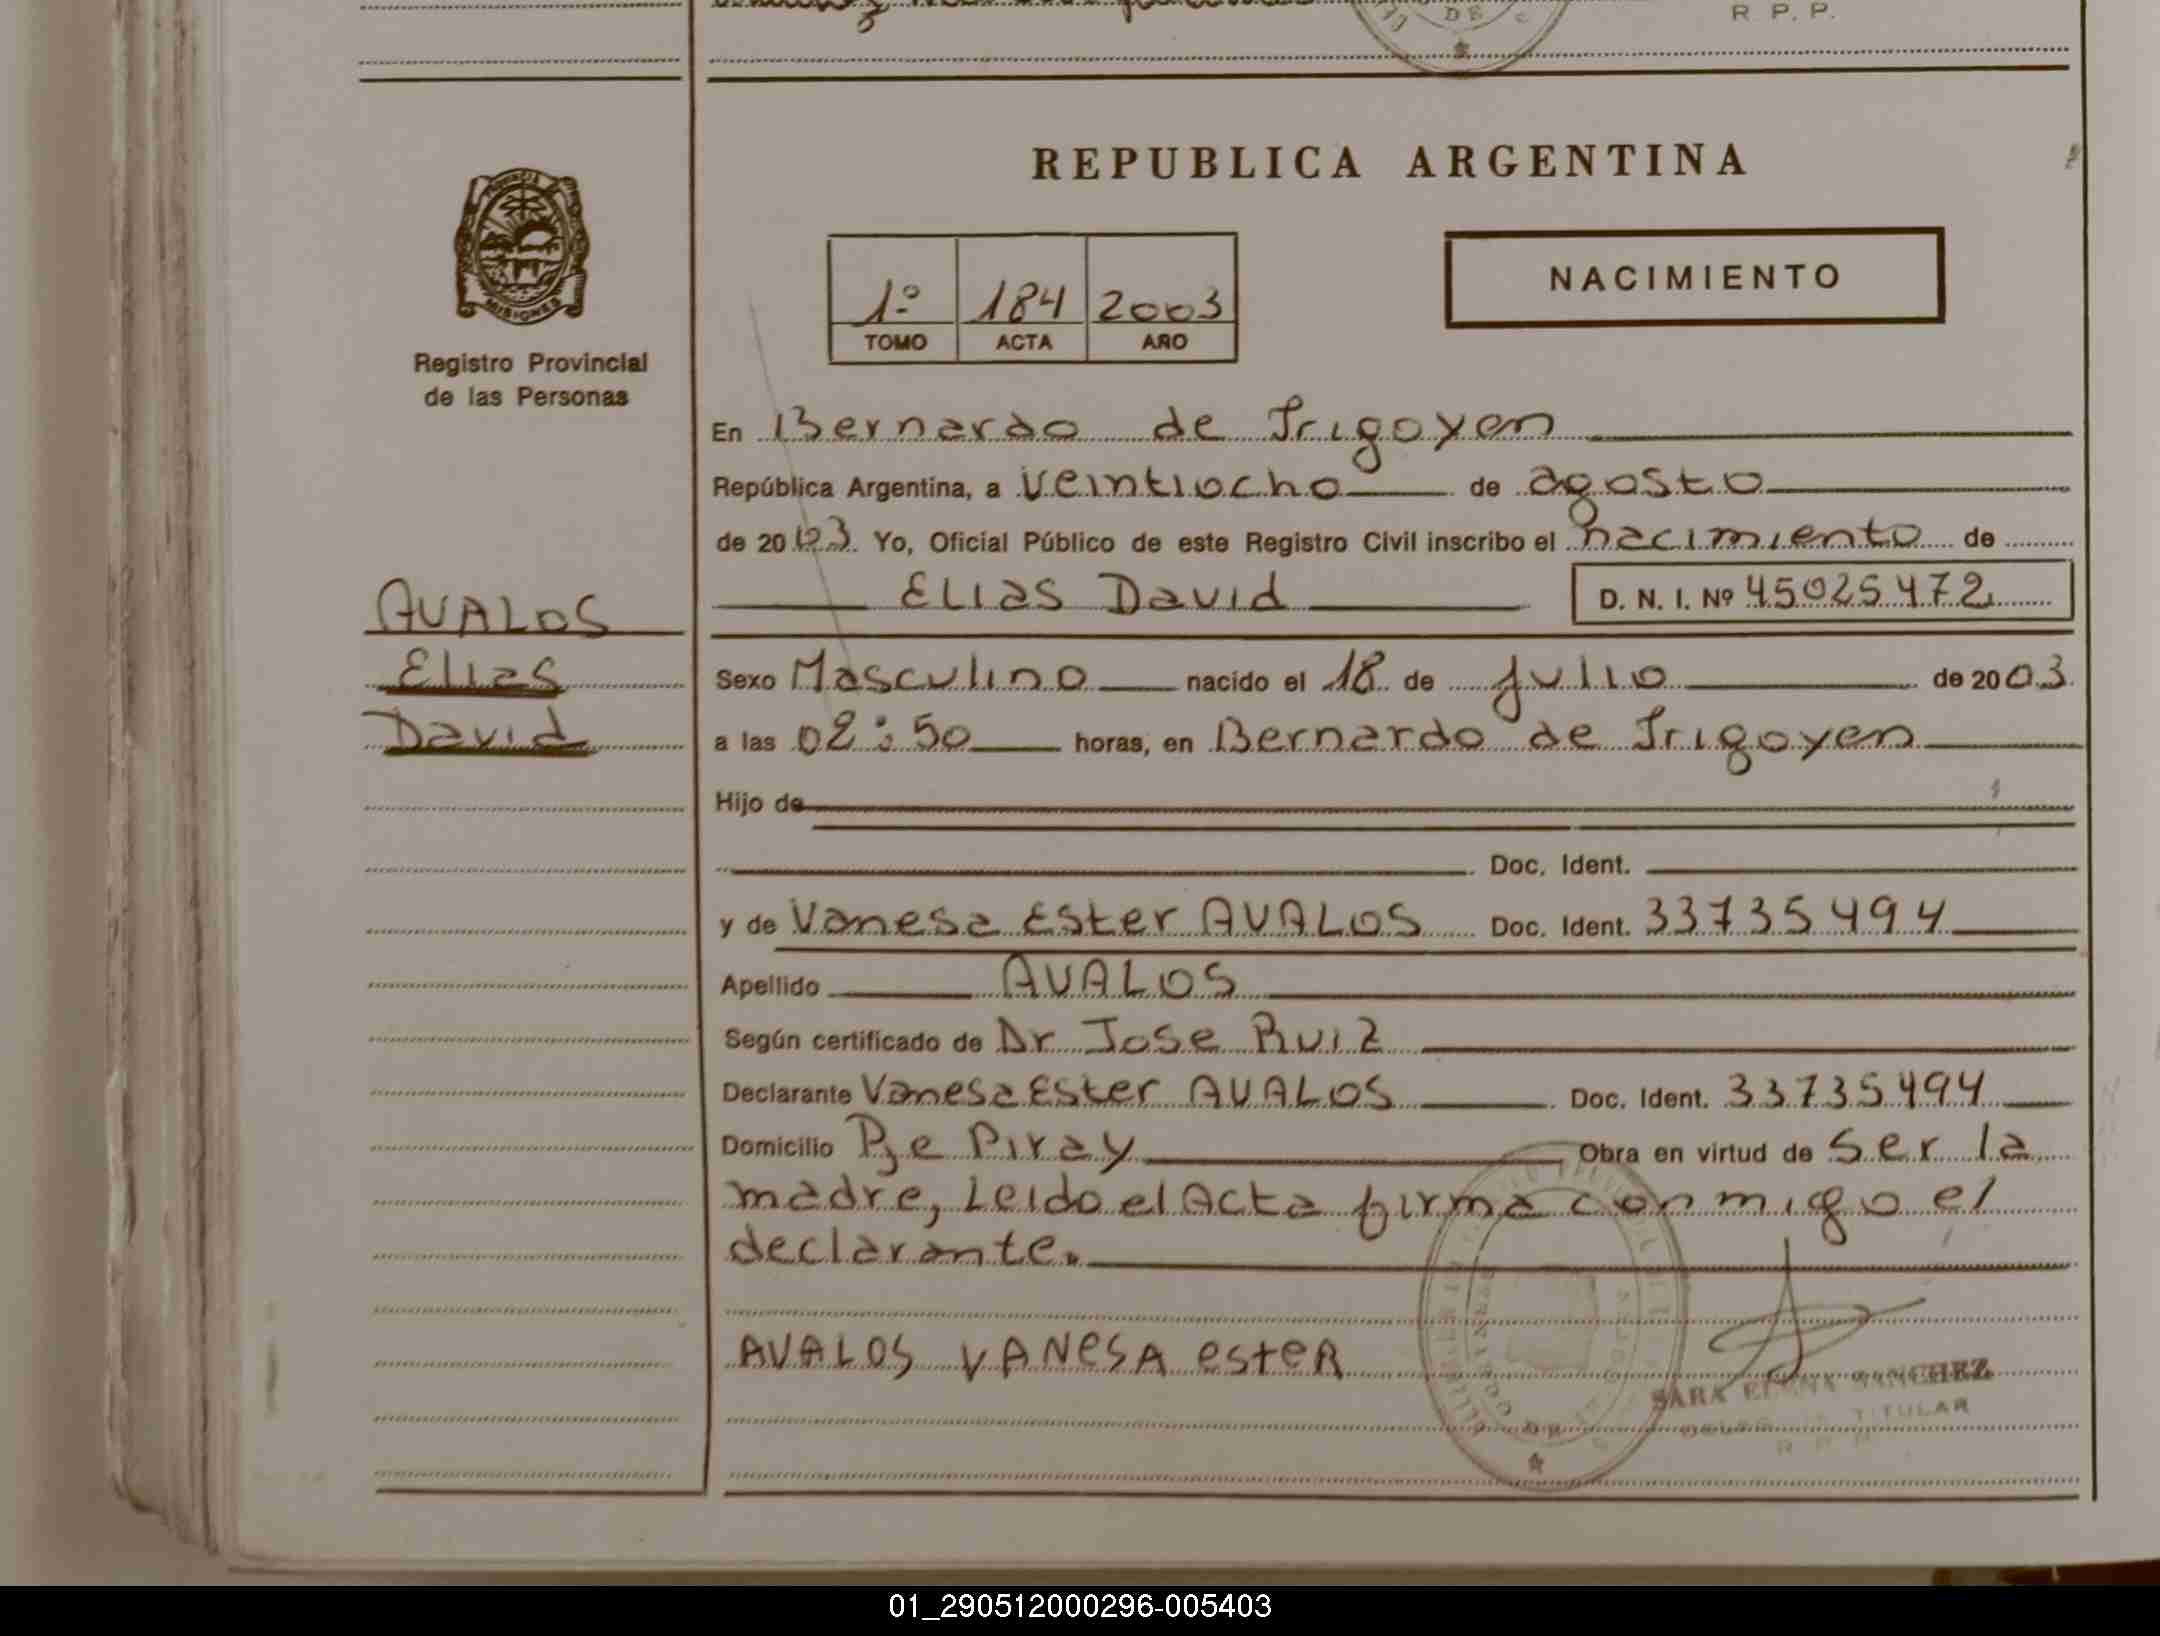 R. P. P.
REPUBLICA ARGENTINA
PROVINCIA
MISIONES
Registro Provincial
de las Personas
1º 184 2003
TOMO ACTA AÑO
NACIMIENTO
En Bernardo de Irigoyen
República Argentina, a veintiocho de agosto
de 2003 Yo, Oficial Público de este Registro Civil inscribo el nacimiento de
AVALOS
Elias
David
Elias David D. N. I. Nº 45025472
Sexo Masculino nacido el 18 de Julio de 2003
a las 02:50 horas, en Bernardo de Irigoyen
Hijo de
Doc. Ident.
y de Vanesa Ester AVALOS Doc. Ident. 33735494
Apellido AVALOS
Según certificado de Dr Jose Ruiz
Declarante Vanesa Ester AVALOS Doc. Ident. 33735494
Domicilio Pje Piray Obra en virtud de ser la
madre, Leido el Acta firma conmigo el
declarante.
AVALOS VANESA ESTER
SARA ELENA SANCHEZ
TITULAR
01_290512000296-005403